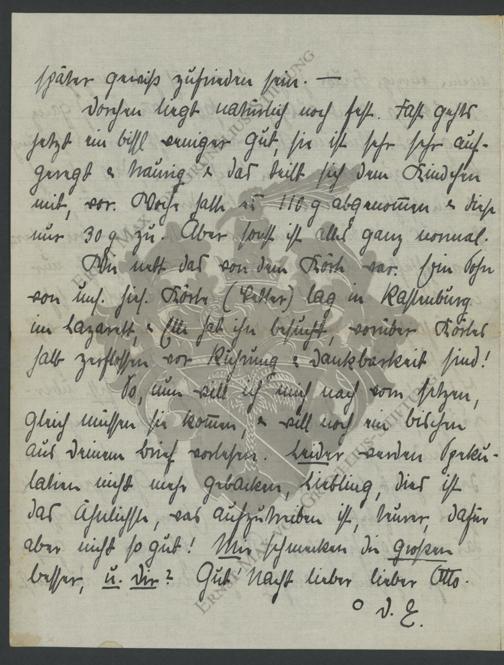 später gewiß zufrieden sein. —
Dorchen liegt natürlich noch fest. Fast gehts
jetzt ein bißl weniger gut, sie ist sehr sehr auf-
geregt & traurig & das teilt sich dem Kindchen
mit, vor. Woche hatte es 110 g abgenommen & diese
nur 30 g zu. Aber sonst ist alles ganz normal.
Wie nett das von dem Körte war. Ein Sohn
von uns. hies. Körte (Vetter) lag in Rastenburg
im Lazarett, & Elle hat ihn besucht, worüber Körtes
halb zerflossen vor Rührung & Dankbarkeit sind!
So, nun will ich mich nach vorn setzen,
gleich müssen sie kommen & will noch ein bischen
aus Deinem Brief vorlesen. Leider werden Speku-
latien nicht mehr gebacken, Liebling, dies ist
das Ähnlichste, was aufzutreiben ist, teurer, dafür
aber nicht so gut! Mir schmecken die großen
besser, u. Dir? Gut' Nacht lieber lieber Otto.
D. E.
ERNST MAX
GRISEBACH-STIFTUNG